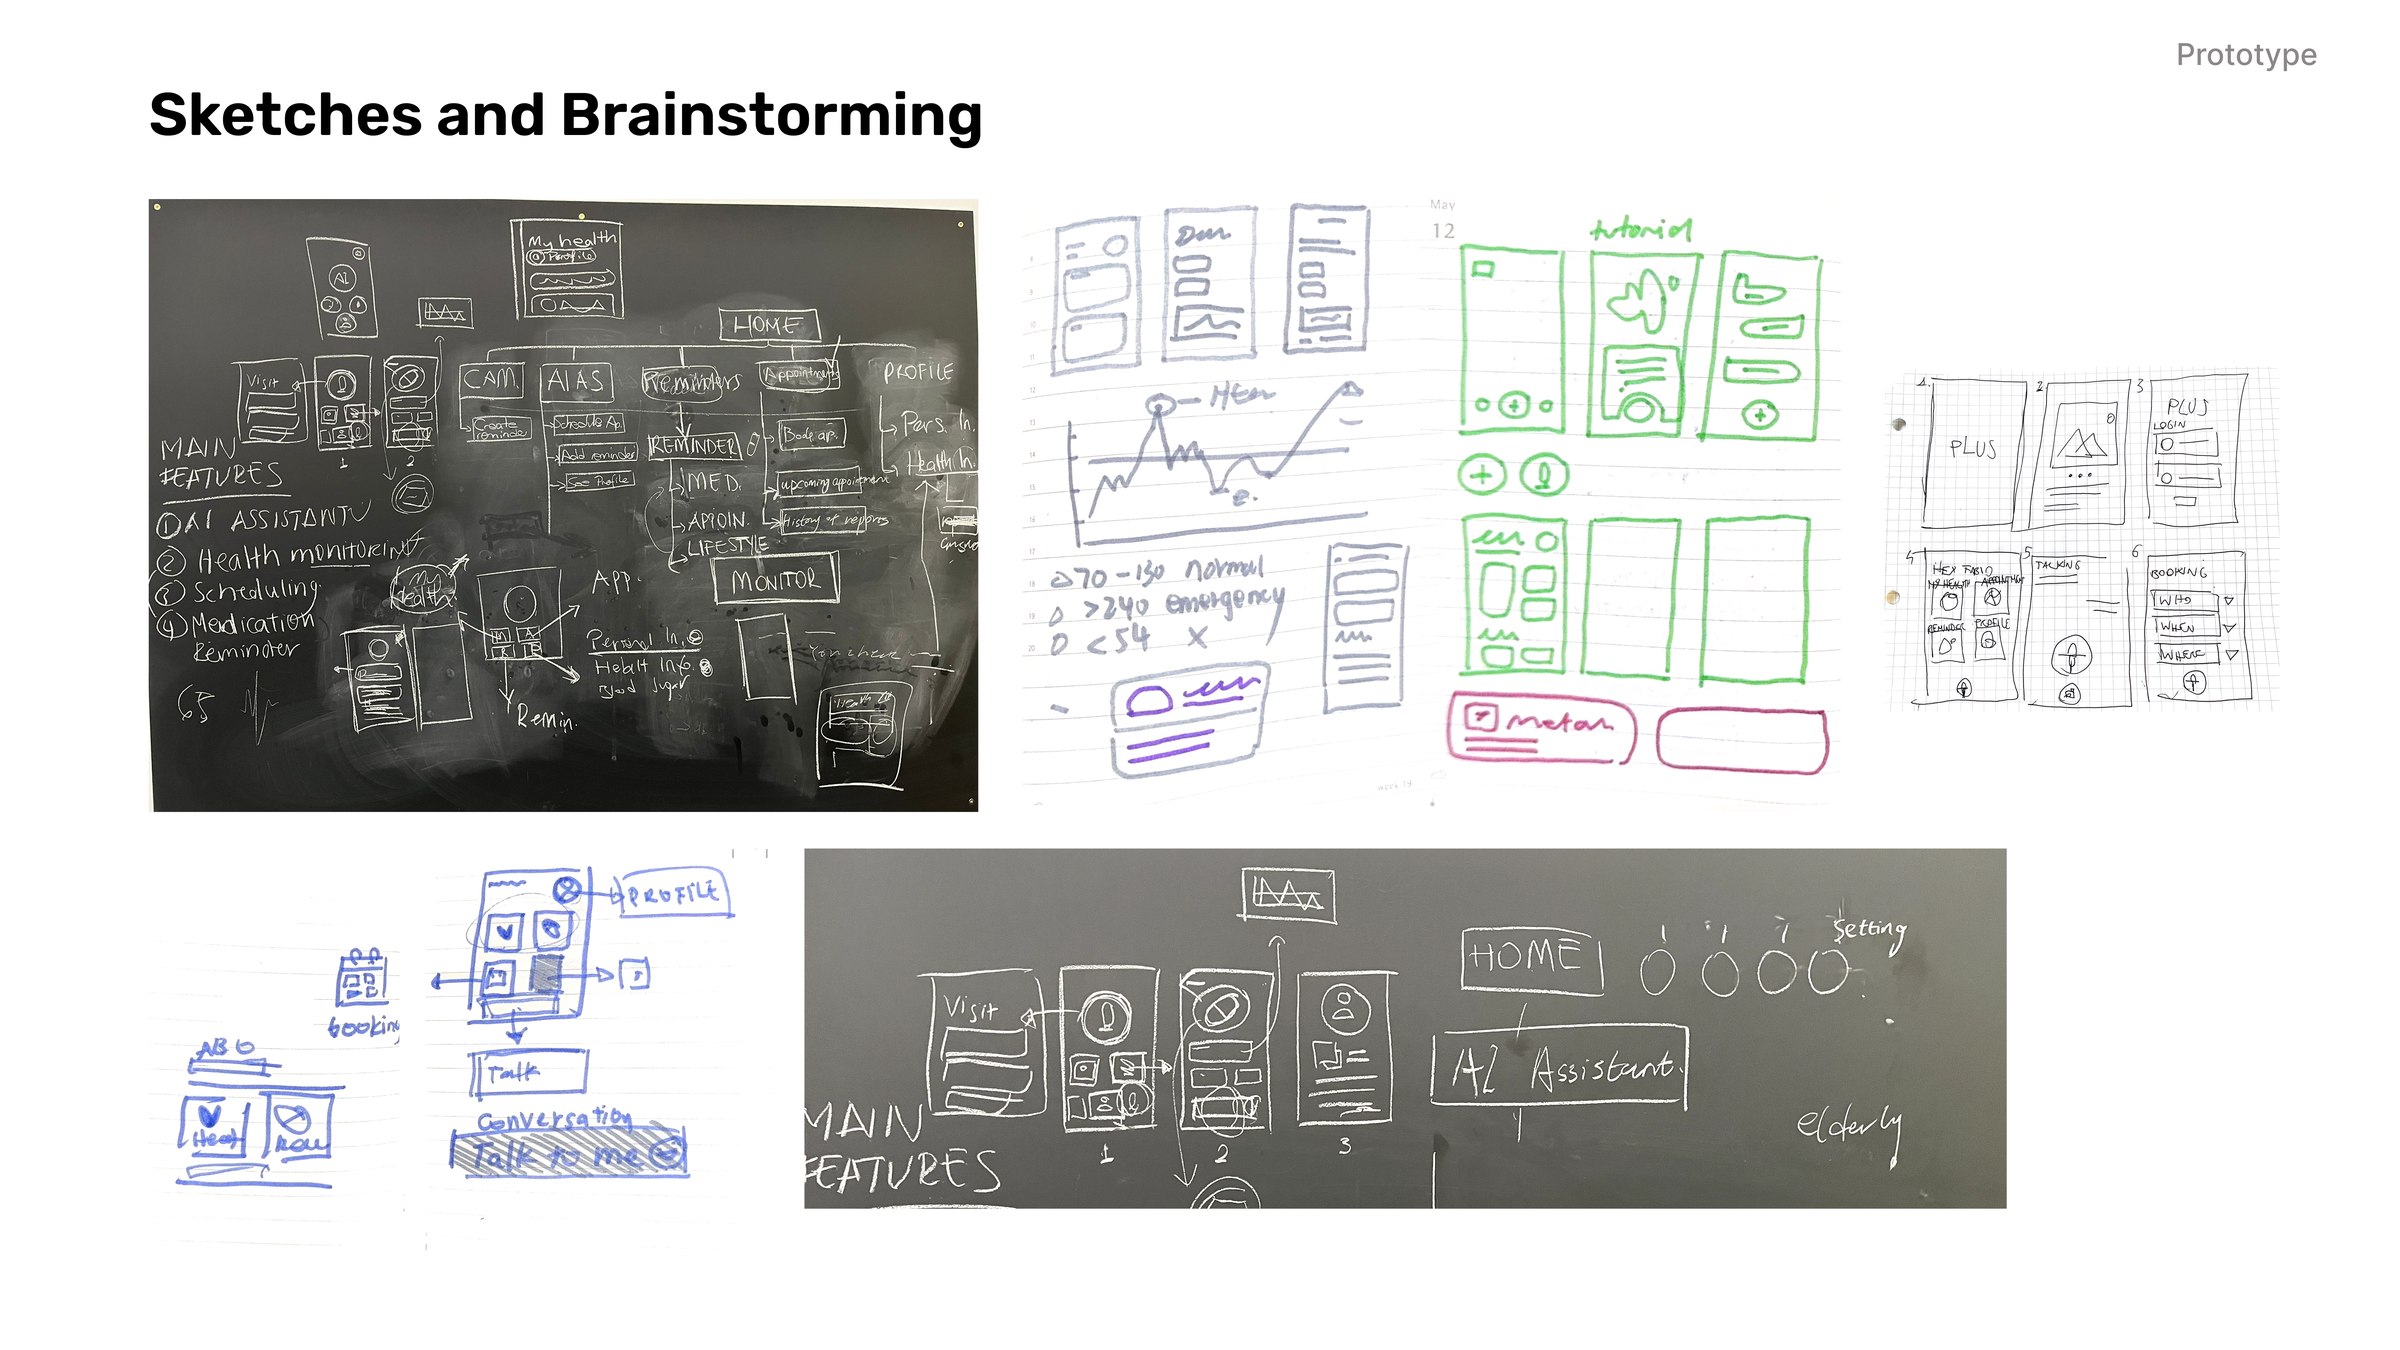 Prototype
Sketches and Brainstorming
My health
Profile
AI
HOME
Visit
CAM.
AI AS
Reminders
Appointments
PROFILE
Create
reminder
Schedule Ap.
Add reminder
See Profile
REMINDER
MED.
APPOIN.
LIFESTYLE
Book ap.
upcoming appointment
History of reports
Pers. In.
Health In.
1
2
MAIN
FEATURES
1 AI ASSISTANT
2 Health monitoring
3 Scheduling
4 Medication
Reminder
My
Health
APP.
MONITOR
Personal In.
Healt Info.
Blood Sugar
Remin.
65
May
12
70-130 normal
>240 emergency
<54 X
tutorial
1.
PLUS
2
3
PLUS
LOGIN
4
HEY FABIO
MY HEALTH
APPOINTMENT
REMINDER
PROFILE
5
TALKING
6
BOOKING
WHO
WHEN
WHERE
week 19
PROFILE
booking
Talk
Conversation
Talk to me
Visit
1
2
3
MAIN
FEATURES
HOME
Setting
AI Assistant.
elderly